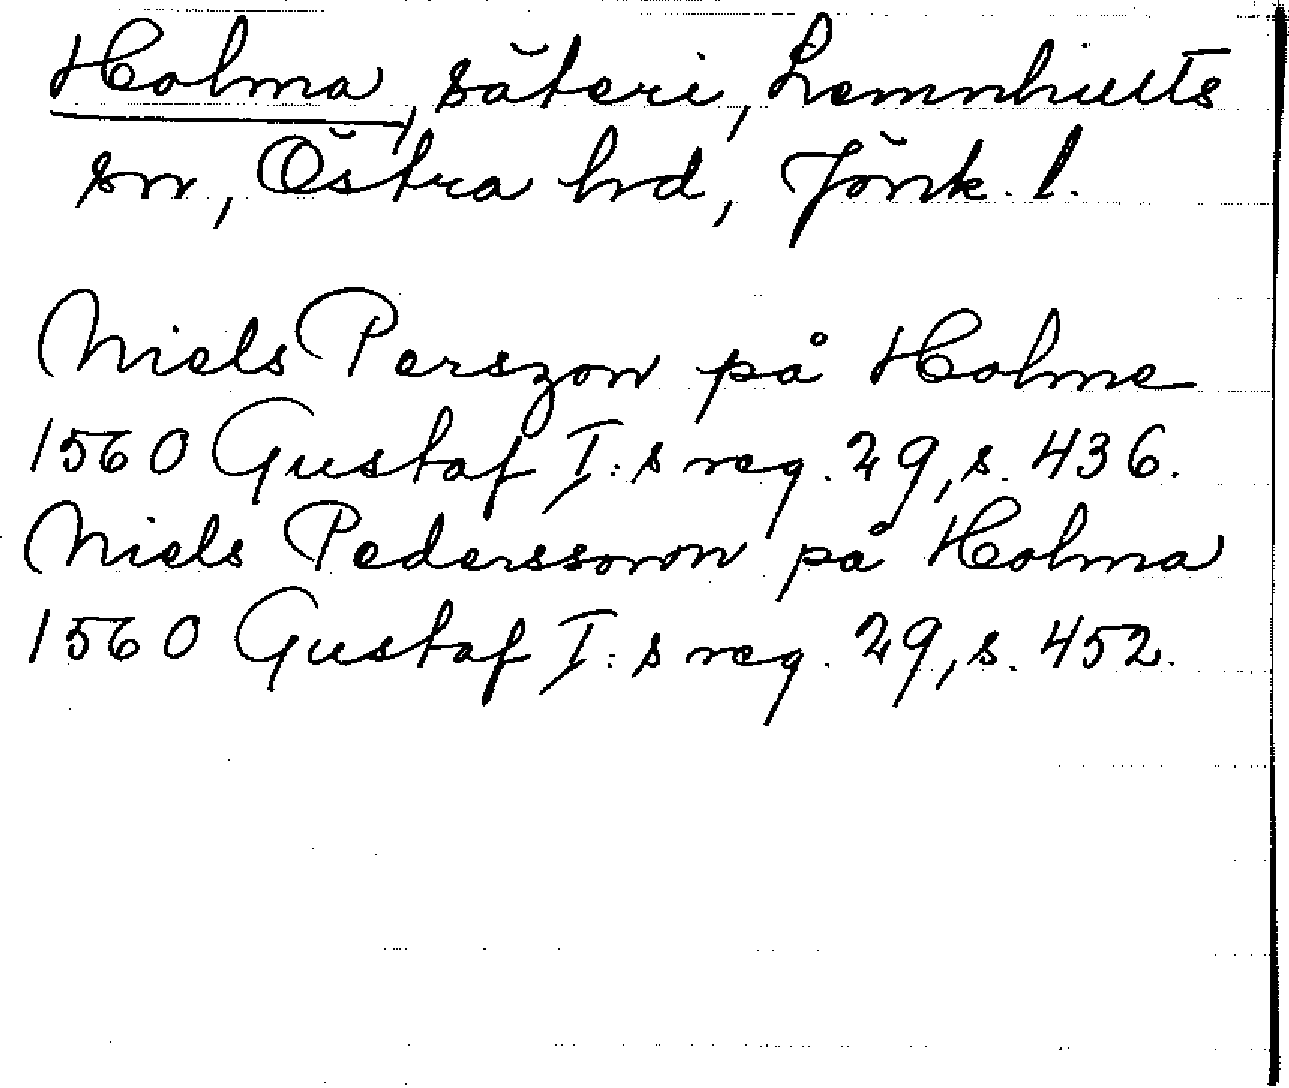 Holma, säteri, Lemnhults
sn, Östra hd, Jönk. l.
Niels Perszon på Holme
1560 Gustaf I:s reg. 29, s. 436.
Niels Pederssonn på Holma
1560 Gustaf I:s reg. 29, s. 452.